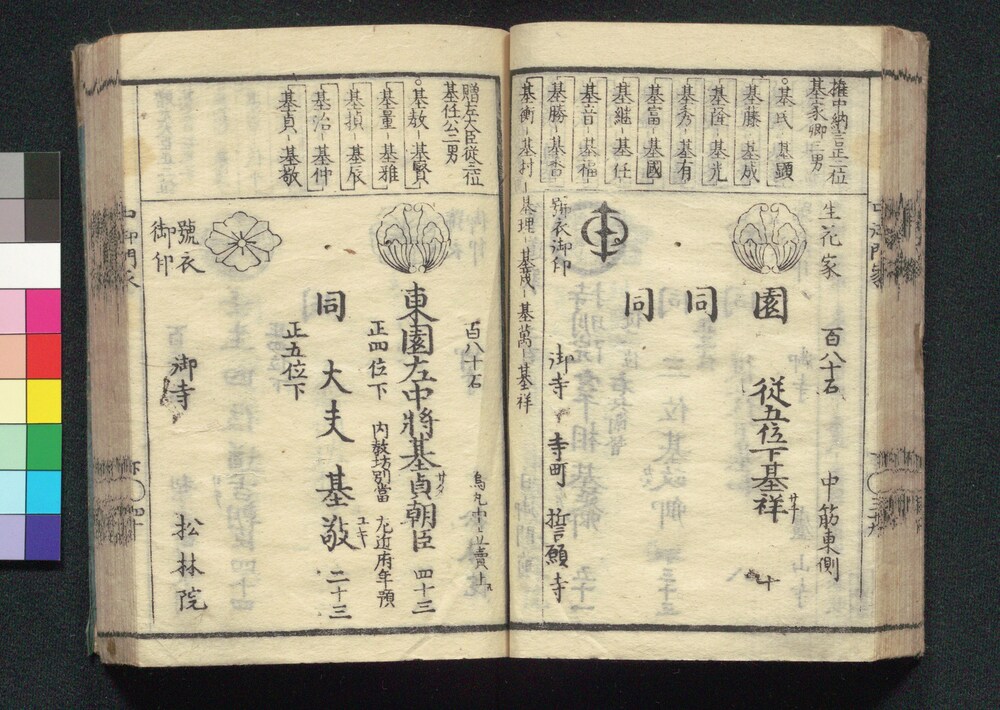 権中納言正二位
基家卿三男
基氏 基顕
基藤 基成
基隆 基光
基秀 基有
基富 基國
基継 基任
基音 基福
基勝 基香
基衡 基村 基理 基茂 基萬 基祥
生花家 百八十石 中筋東側
園 従五位下基祥 サチ 十
同
同
號衣御印 御寺 寺町 誓願寺
贈左大臣従三位
基任公二男
基教 基賢
基量 基雅
基禎 基辰
基治 基仲
基貞 基敬
百八十石 烏丸中立賣上ル
東園左中將基貞朝臣 サダ 四十三
正四位下 内教坊別當 左近府年預
同 大夫 基敬 ユキ 二十三
正五位下
號衣
御印 御寺 松林院